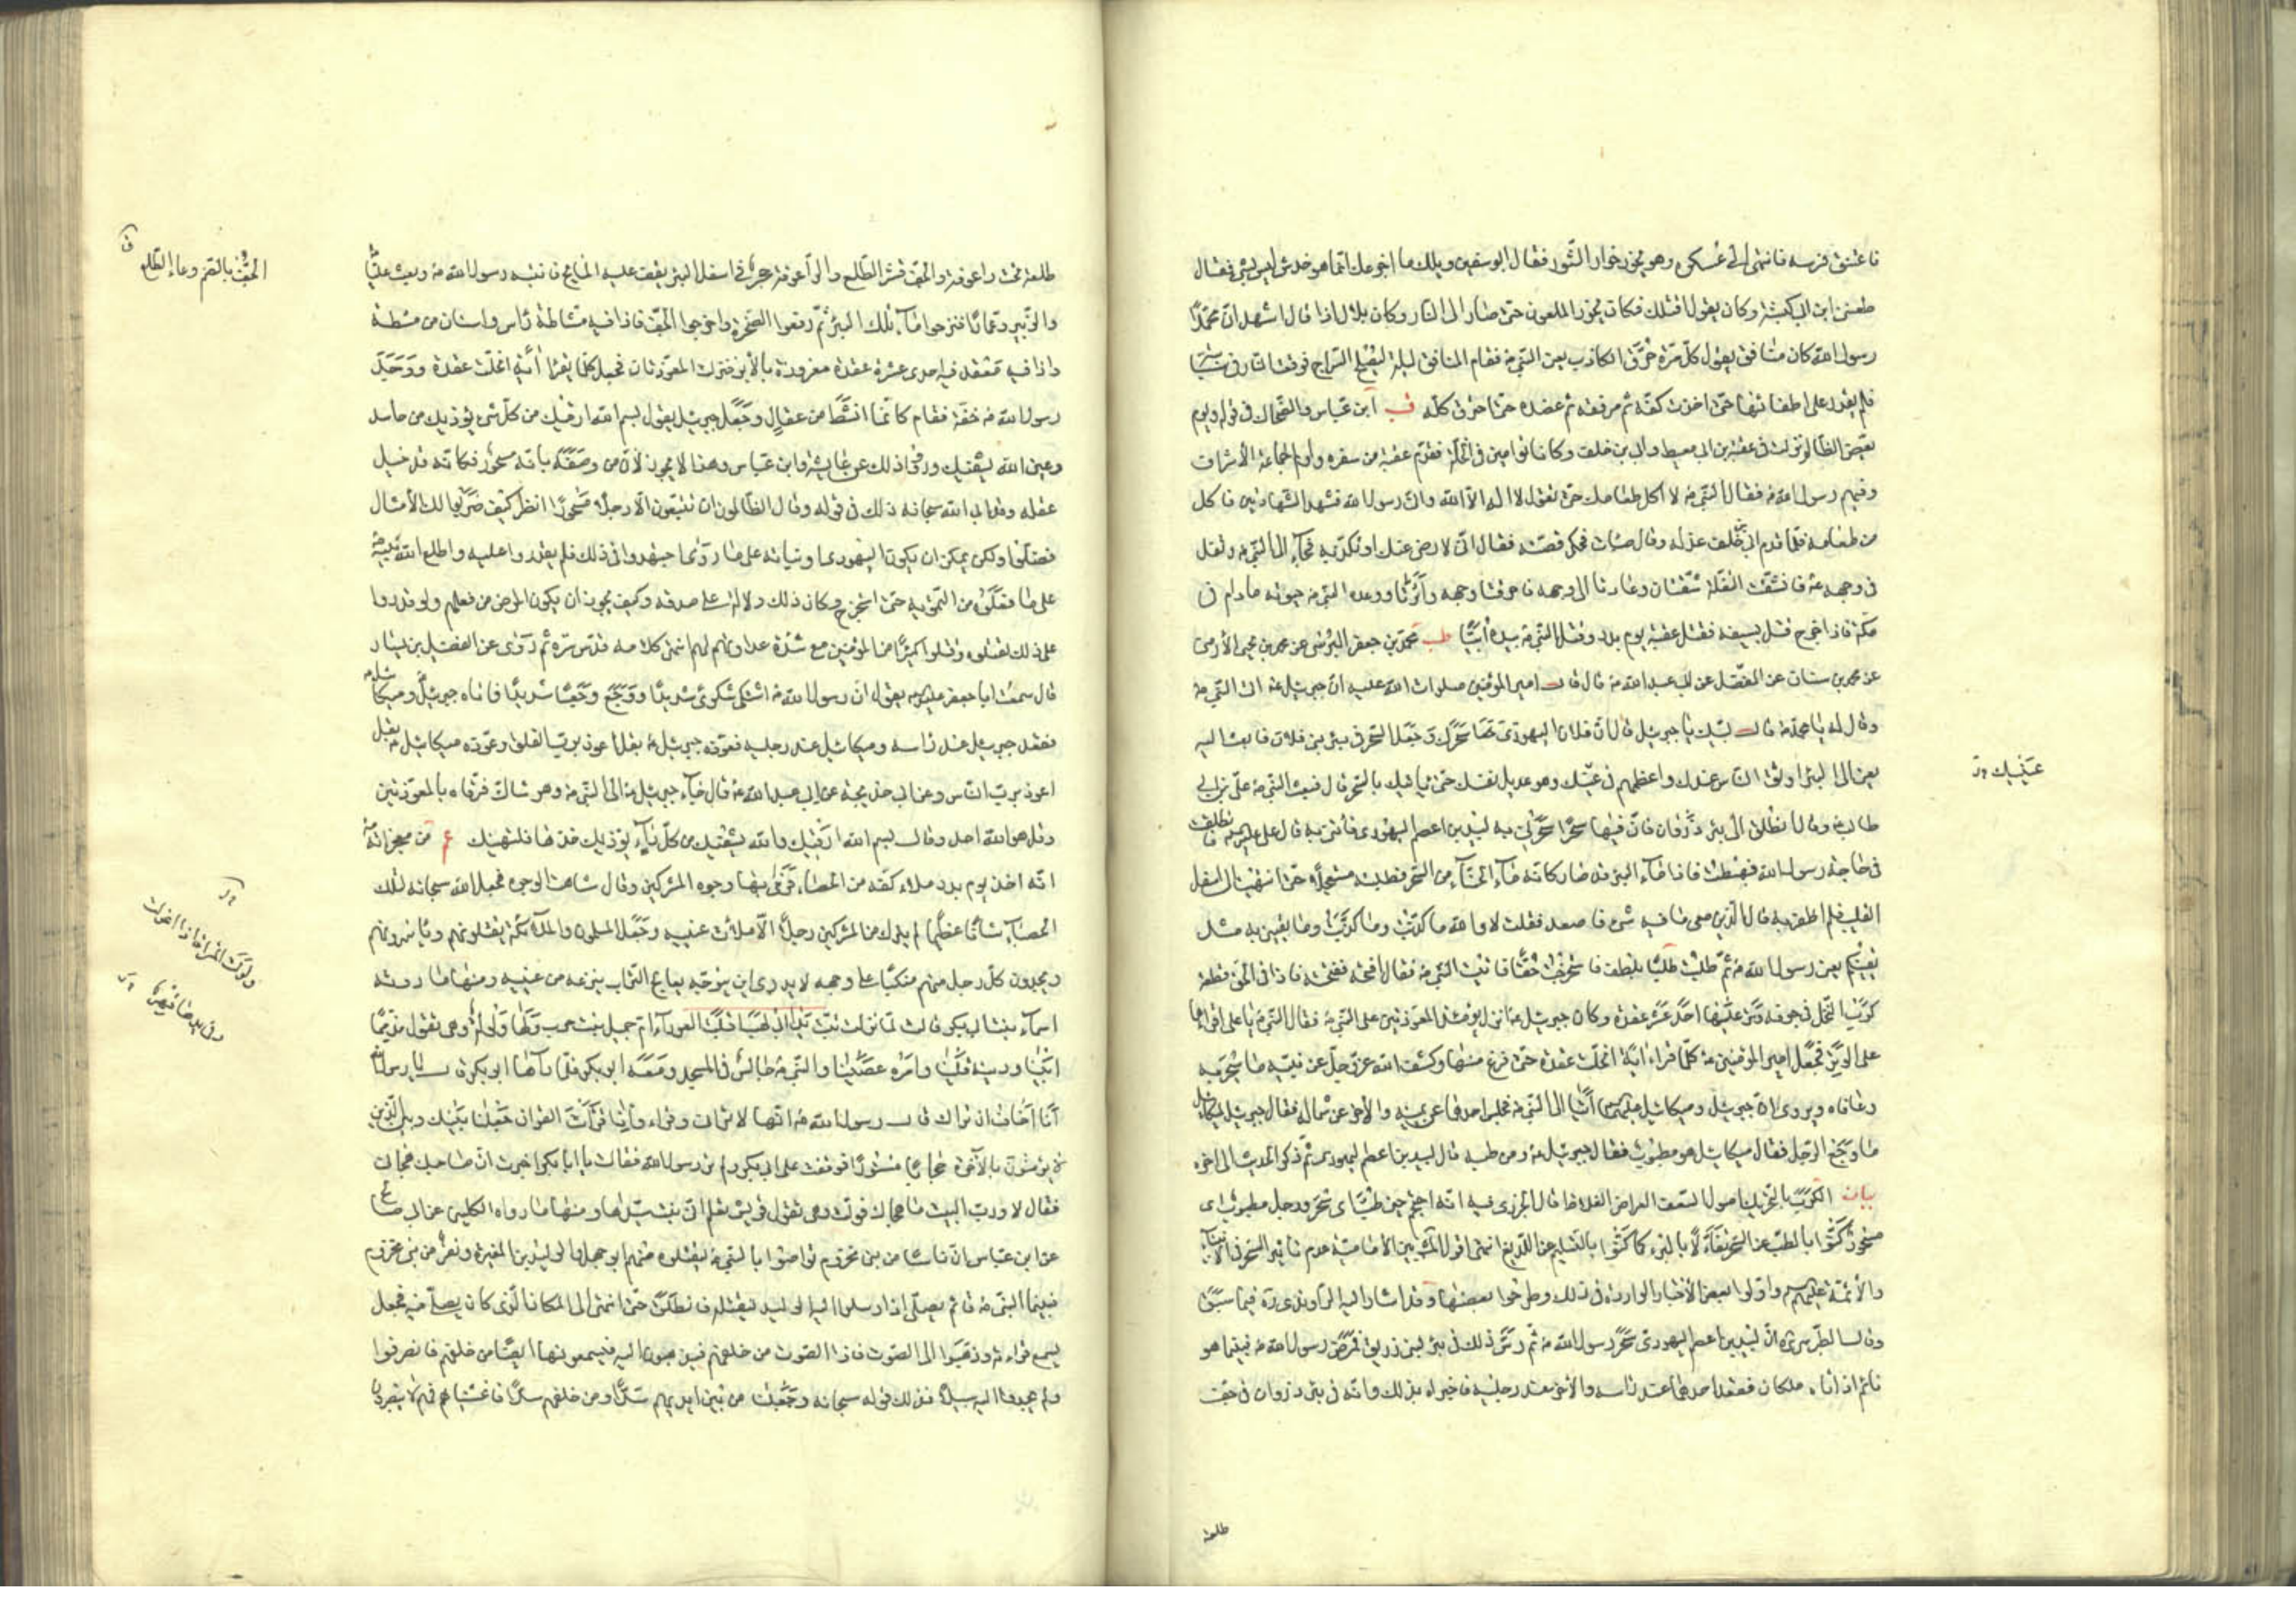 فاعتنق فرسه فانتهى الى عسكره وهو يخور خوار الثور فقال ابو سفين ويلك ما اجزعك انما هو خدش ليس بشئ فقال
طعننى ابن ابى كبشة وكان يقول اقتلك فكان يخور الملعون حتى صار الى النار وكان بلال اذا قال اشهد ان محمدا
رسول الله كان منافق يقول كل مرة حرق الكاذب يعنى النبى فقام المنافق ليلة ليصلح السراج فوقعت النار فى سبابته
فلم يقدر على اطفائها حتى اخذت كفه ثم مرفقه ثم عضده حتى احرق كله قب ابن عباس والضحاك فى قوله ويوم
يعض الظالم نزلت فى عقبة بن ابى معيط وابى بن خلف وكانا توأمين فى الخلة فقدم عقبة من سفره واولم لجماعة الاشراف
وفيهم رسول الله فقال النبى لا اكل طعامك حتى تقول لا اله الا الله وانى رسول الله فشهد الشهادتين فاكل
من طعامه فلما قدم ابى بن خلف عذله وقال صبات فحكى قصته فقال انى لا ارضى عنك او تكذبه فجاء الى النبى وتفل
فى وجهه فانشقت التفلة شقتان وعادتا الى وجهه فاحرقتا وجهه واثرتا ووعده النبى حيوته ما دام فى
مكة فاذا خرج قتل بسيفه فقتل عقبة يوم بدر وقتل النبى بيده ابيا طب محمد بن جعفر البرسى عن محمد بن يحيى الارمنى
عن محمد بن سنان عن المفضل عن ابى عبد الله قال قال امير المؤمنين صلوات الله عليه ان جبرئيل اتى النبى
وقال له يا محمد قال لبيك يا جبرئيل قال ان فلانا اليهودى سحرك وجعل السحر فى بئر بنى فلان فابعث اليه
يعنى الى البئر اوثق الناس عندك واعظمهم فى عينك وهو عديل نفسك حتى ياتيك بالسحر قال فبعث النبى على بن ابى
عينيك
طالب وقال انطلق الى بئر ذروان فان فيها سحرا سحرنى به لبيد بن اعصم اليهودى فأتنى به قال على فانطلقت
فى حاجة رسول الله فهبطت فاذا ماء البئر قد صار كانه ماء الحناء من السحر فطلبته مستعجلا حتى انتهيت الى اسفل
القليب فلم اظفر به قال الذين معى ما فيه شئ فاصعد فقلت لا والله ما كذبت وما كذبت وما يقينى به مثل
يقينكم يعنى رسول الله ثم طلبت طلبا بلطف فاستخرجت حقا فاتيت النبى فقال افتحه ففتحته فاذا فى الحق قطعة
كرب النخل فى جوفه وتر عليها احد عشر عقدة وكان جبرئيل انزل يومئذ المعوذتين على النبى فقال النبى يا على اقراها
على الوتر فجعل امير المؤمنين كلما قراء اية انحلت عقدة حتى فرغ منها وكشف الله عز وجل عن نبيه ما سحر به
وعافاه ويروى ان جبرئيل وميكائيل اتيا الى النبى فجلس احدهما عن يمينه والاخر عن شماله فقال جبرئيل لميكائيل
ما وجع الرجل فقال ميكائيل هو مطبوب فقال جبرئيل ومن طبه قال لبيد بن اعصم اليهودى ثم ذكر الحديث الى اخره
بيان الكرب بالتحريك اصول السعف العراض الغلاظ قال الجزرى فيه انه احتجم حين طب اى سحر ورجل مطبوب اى
مسحور كنوا بالطب عن السحر تفاءلا بالبرء كما كنوا بالسليم عن اللديغ انتهى اقول المشهور بين الامامية عدم تاثير السحر فى الانبياء
والائمة واولوا بعض الاخبار الواردة فى ذلك وطرحوا بعضها وقد اشار اليه الراوندى فيما سبق
وقال الطبرسى ان لبيد بن اعصم اليهودى سحر رسول الله ثم دس ذلك فى بئر لبنى زريق فمرض رسول الله فبينما هو
نائم اذ اتاه ملكان فقعد احدهما عند راسه والاخر عند رجليه فاخبراه بذلك وانه فى بئر ذروان فى جف
طلعة
طلعة تحت راعوفة والجف قشر الطلع والراعوفة حجر فى اسفل البئر يقف عليه المايح فانتبه رسول الله وبعث عليا
الجف بالضم وعاء الطلع ق
والزبير وعمارا فنزحوا ماء تلك البئر ثم رفعوا الصخرة واخرجوا الجف فاذا فيه مشاطة راس واسنان من مشطه
واذا فيه معقد فيه احدى عشرة عقدة مغروزة بالابر فنزلت المعوذتان فجعل كلما يقرأ اية انحلت عقدة ووجد
رسول الله خفة فقام كانما انشط من عقال وجعل جبرئيل يقول بسم الله ارقيك من كل شئ يؤذيك من حاسد
وعين الله يشفيك ورووا ذلك عن عايشة وابن عباس وهذا لا يجوز لان من وصفه بانه مسحور فكانه قد خبل
عقله وقد ابى الله سبحانه ذلك فى قوله وقال الظالمون ان تتبعون الا رجلا مسحورا انظر كيف ضربوا لك الامثال
فضلوا ولكن يمكن ان يكون اليهودى او بناته على ما روى اجتهدوا فى ذلك فلم يقدروا عليه واطلع الله نبيه
على ما فعلوه من التمويه حتى استخرج وكان ذلك دلالة على صدقه وكيف يجوز ان يكون المرض من فعلهم ولو قدروا
على ذلك لقتلوه وقتلوا كثيرا من المؤمنين مع شدة عداوتهم لهم انتهى كلامه قدس سره ثم روى عن الفضيل بن يسار
قال سمعت ابا جعفر يقول ان رسول الله اشتكى شكوى شديدا ووجع وجعا شديدا فاتاه جبرئيل وميكائيل
فقعد جبرئيل عند راسه وميكائيل عند رجليه فعوذه جبرئيل بقل اعوذ برب الفلق وعوذه ميكائيل بقل
اعوذ برب الناس وعن ابى خديجة عن ابى عبد الله قال جاء جبرئيل الى النبى وهو شاك فرقاه بالمعوذتين
وقل هو الله احد وقال بسم الله ارقيك والله يشفيك من كل داء يؤذيك خذها فلتهنيك عم من معجزاته
انه اخذ يوم بدر ملاء كفه من الحصاء فرمى بها وجوه المشركين وقال شاهت الوجوه فجعل الله سبحانه لتلك
الحصاء شانا عظيما لم يترك من المشركين رجلا الا ملات عينيه وجعل المسلمون والملائكة يقتلونهم ويأسرونهم
ويجدون كل رجل منهم منكبا على وجهه لا يدرى اين يتوجه يعالج التراب ينزعه من عينيه ومنها ما روته
اسماء بنت ابى بكر قالت لما نزلت تبت يدا ابى لهب اقبلت العوراء ام جميل بنت حرب ولها ولولة وهى تقول مذمما
ابينا ودينه قلينا وامره عصينا والنبى جالس فى المسجد ومعه ابو بكر فلما رآها ابو بكر قال يا رسول الله
انا اخاف ان تراك قال رسول الله انها لا ترانى وقراء واذا قرأت القران جعلنا بينك وبين الذين
لا يؤمنون بالاخرة حجابا مستورا فوقفت على ابى بكر ولم تر رسول الله فقالت يا ابا بكر اخبرت ان صاحبك هجانى
فقال لا ورب البيت ما هجاك فولت وهى تقول قريش تعلم انى بنت سيدها ومنها ما رواه الكلبى عن ابى صالح
عن ابن عباس ان ناسا من بنى مخزوم تواصوا بالنبى ليقتلوه منهم ابو جهل والوليد بن المغيرة ونفر من بنى مخزوم
فبينما النبى قائم يصلى اذ ارسلوا اليه الوليد ليقتله فانطلق حتى انتهى الى المكان الذى كان يصلى فيه فجعل
يسمع قراءته وذهبوا الى الصوت فاذا الصوت من خلفهم فيذهبون اليه فيسمعونها ايضا من خلفهم فانصرفوا
ولم يجدوا اليه سبيلا فذلك قوله سبحانه وجعلنا من بين ايديهم سدا ومن خلفهم سدا فاغشيناهم فهم لا يبصرون